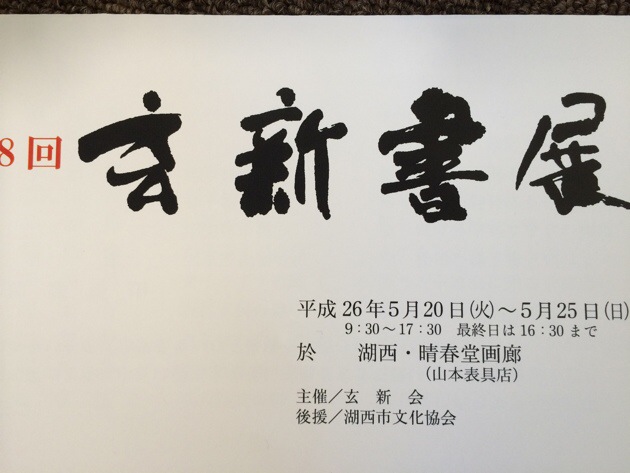 8回 玄新書展
平成26年5月20日(火)～5月25日(日)
9:30～17:30 最終日は16:30まで
於 湖西・晴春堂画廊
(山本表具店)
主催／玄 新 会
後援／湖西市文化協会